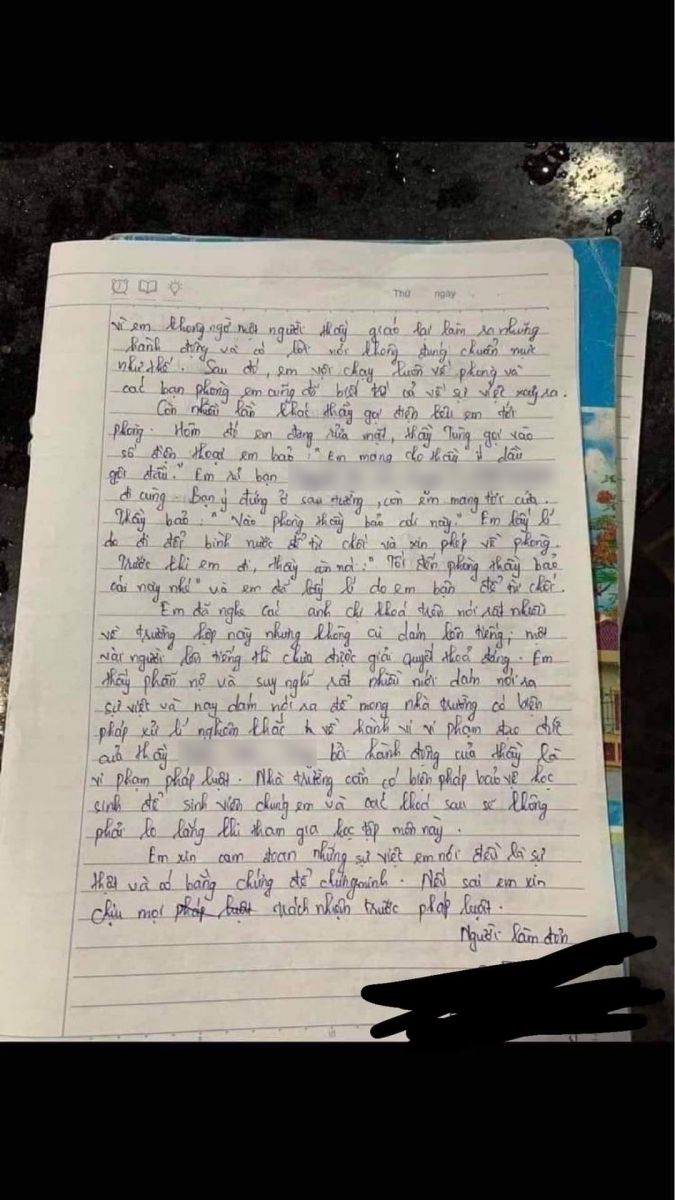 Thứ ngày
vì em không ngờ một người thầy giáo lại làm ra những
hành động và có lời nói không đúng chuẩn mực
như thế. Sau đó, em vội chạy luôn về phòng và
các bạn phòng em cũng đã biết tất cả về sự việc xảy ra.
Còn nhiều lần khác thầy gọi điện kêu em tới
phòng. Hôm đó em đang rửa mặt, thầy Tùng gọi vào
số điện thoại em bảo: "Em mang cho thầy ít dầu
gội đầu." Em rủ bạn
đi cùng. Bạn ý đứng ở sau tường, còn em mang tới cửa.
Thầy bảo: "Vào phòng thầy bảo cái này." Em lấy lí
do đi đổi bình nước để từ chối và xin phép về phòng.
Trước khi em đi, thầy còn nói: "Tối đến phòng thầy bảo
cái này nhé" và em đã lấy lí do em bận để từ chối.
Em đã nghe các anh chị khoá trên nói rất nhiều
về trường hợp này nhưng không ai dám lên tiếng, một
vài người lên tiếng thì chưa được giải quyết thoả đáng. Em
thấy phẫn nộ và suy nghĩ rất nhiều mới dám nói ra
sự việc và nay dám nói ra để mong nhà trường có biện
pháp xử lí nghiêm khắc về hành vi vi phạm đạo đức
của thầy bởi hành động của thầy là
vi phạm pháp luật. Nhà trường cần có biện pháp bảo vệ học
sinh để sinh viên chúng em và các khoá sau sẽ không
phải lo lắng khi tham gia học tập môn này.
Em xin cam đoan những sự việc em nói đều là sự
thật và có bằng chứng để chứng minh. Nếu sai em xin
chịu mọi pháp luật trách nhiệm trước pháp luật.
Người làm đơn